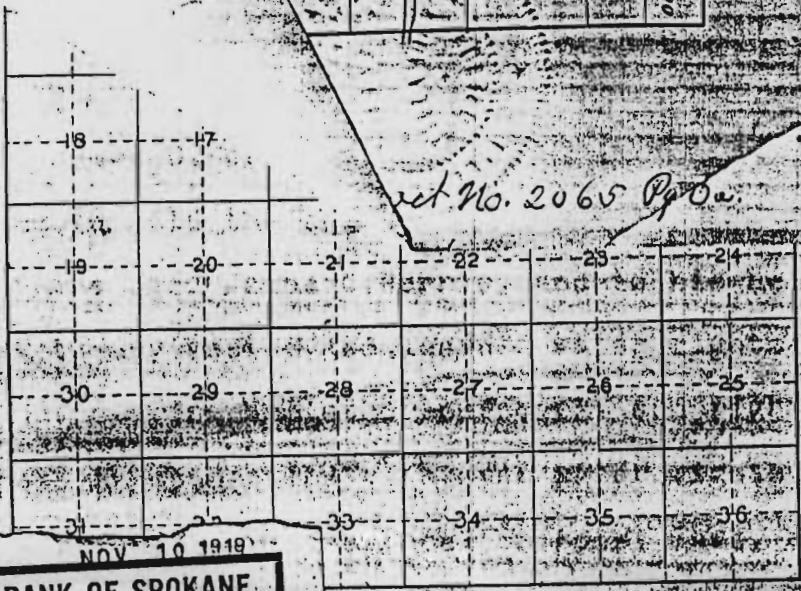 18 17
vet. No. 2065
19 20 21 22 23 24
30 29 28 27 26 25
31 32 33 34 35 36
NOV 10 1919
BANK OF SPOKANE